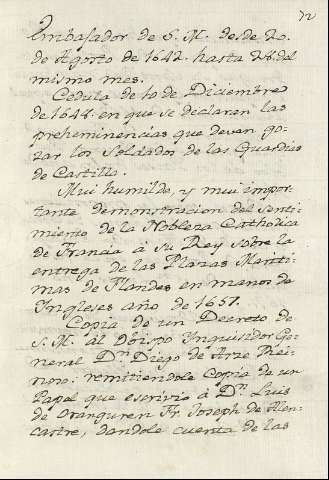 72
Embajador de S. M. desde 20.
de Agosto de 1642. hasta 28. del
mismo mes.
Cedula de 10 de Diciembre
de 1648. en que se declaren las
preheminencias que deven go-
zar los Soldados de las Guardias
de Castilla.
Mui humilde, y mui impor-
tante demonstracion del senti-
miento de la Nobleza Catholica
de Francia à su Rey sobre la
entrega de las Plazas Marití-
mas de Flandes en manos de
Ingleses año de 1657.
Copia de un Decreto de
S. M. al Obispo Inquisidor Ge-
neral Dn. Diego de Arze Rei-
noso: remitiendole copia de un
Papel que escrivio à Dn. Luis
de Oranguren Fr. Joseph de Alen-
castre, dandole cuenta de las